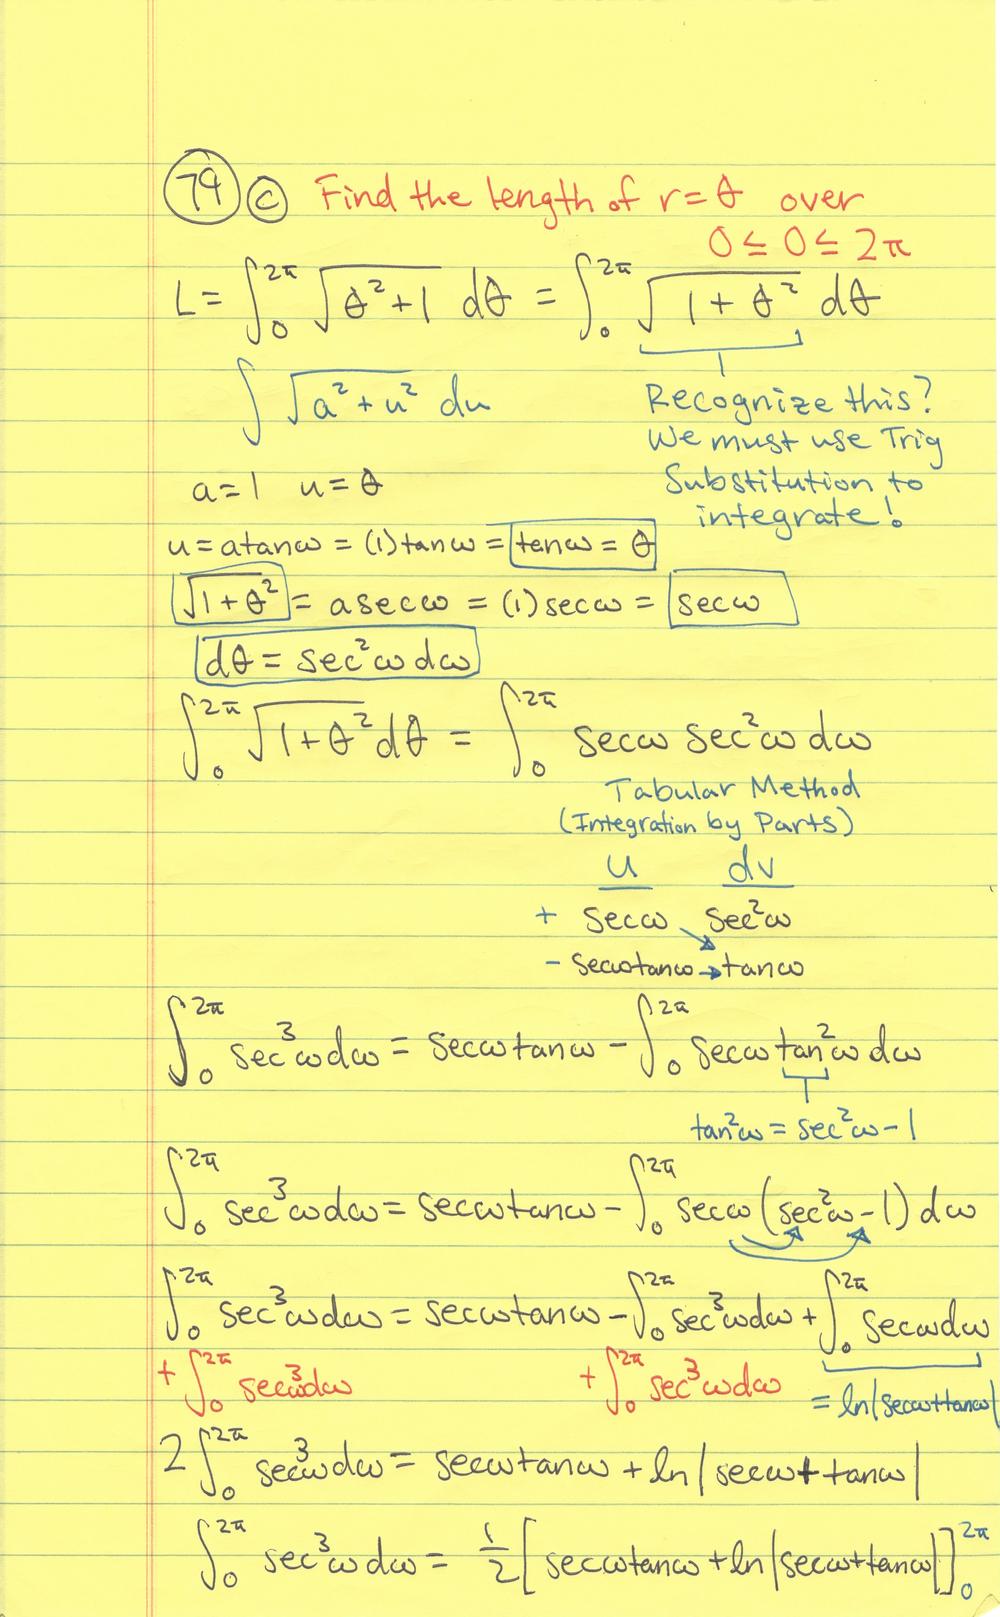 79 c Find the length of r = θ over
0 ≤ θ ≤ 2π
L = ∫₀^2π √(θ² + 1) dθ = ∫₀^2π √(1 + θ²) dθ
∫ √(a² + u²) du
Recognize this?
We must use Trig
Substitution to
integrate!
a = 1 u = θ
u = a tan ω = (1) tan ω = tan ω = θ
√(1 + θ²) = a sec ω = (1) sec ω = sec ω
dθ = sec²ω dω
∫₀^2π √(1 + θ²) dθ = ∫₀^2π sec ω sec²ω dω
Tabular Method
(Integration by Parts)
u dv
+ sec ω sec²ω
- sec ω tan ω → tan ω
∫₀^2π sec³ω dω = sec ω tan ω - ∫₀^2π sec ω tan²ω dω
tan²ω = sec²ω - 1
∫₀^2π sec³ω dω = sec ω tan ω - ∫₀^2π sec ω (sec²ω - 1) dω
∫₀^2π sec³ω dω = sec ω tan ω - ∫₀^2π sec³ω dω + ∫₀^2π sec ω dω
+ ∫₀^2π sec³ω dω + ∫₀^2π sec³ω dω = ln|sec ω + tan ω|
2 ∫₀^2π sec³ω dω = sec ω tan ω + ln|sec ω + tan ω|
∫₀^2π sec³ω dω = 1/2 [sec ω tan ω + ln|sec ω + tan ω|]₀^2π